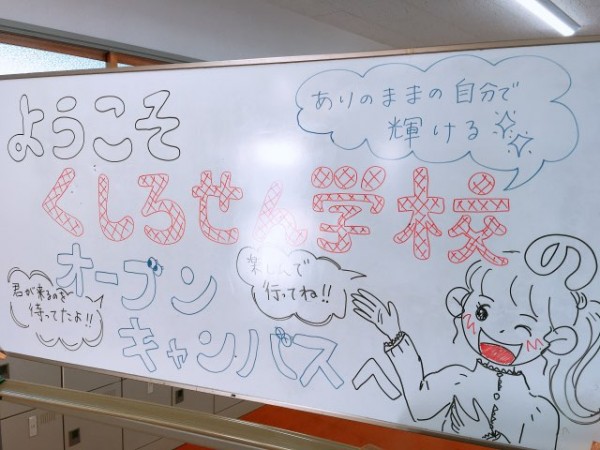 ようこそ
ありのままの自分で
輝ける
くしろせん学校の
オープン
キャンパスへ
君が来るのを
待ってたよ!!
楽しんで
行ってね!!